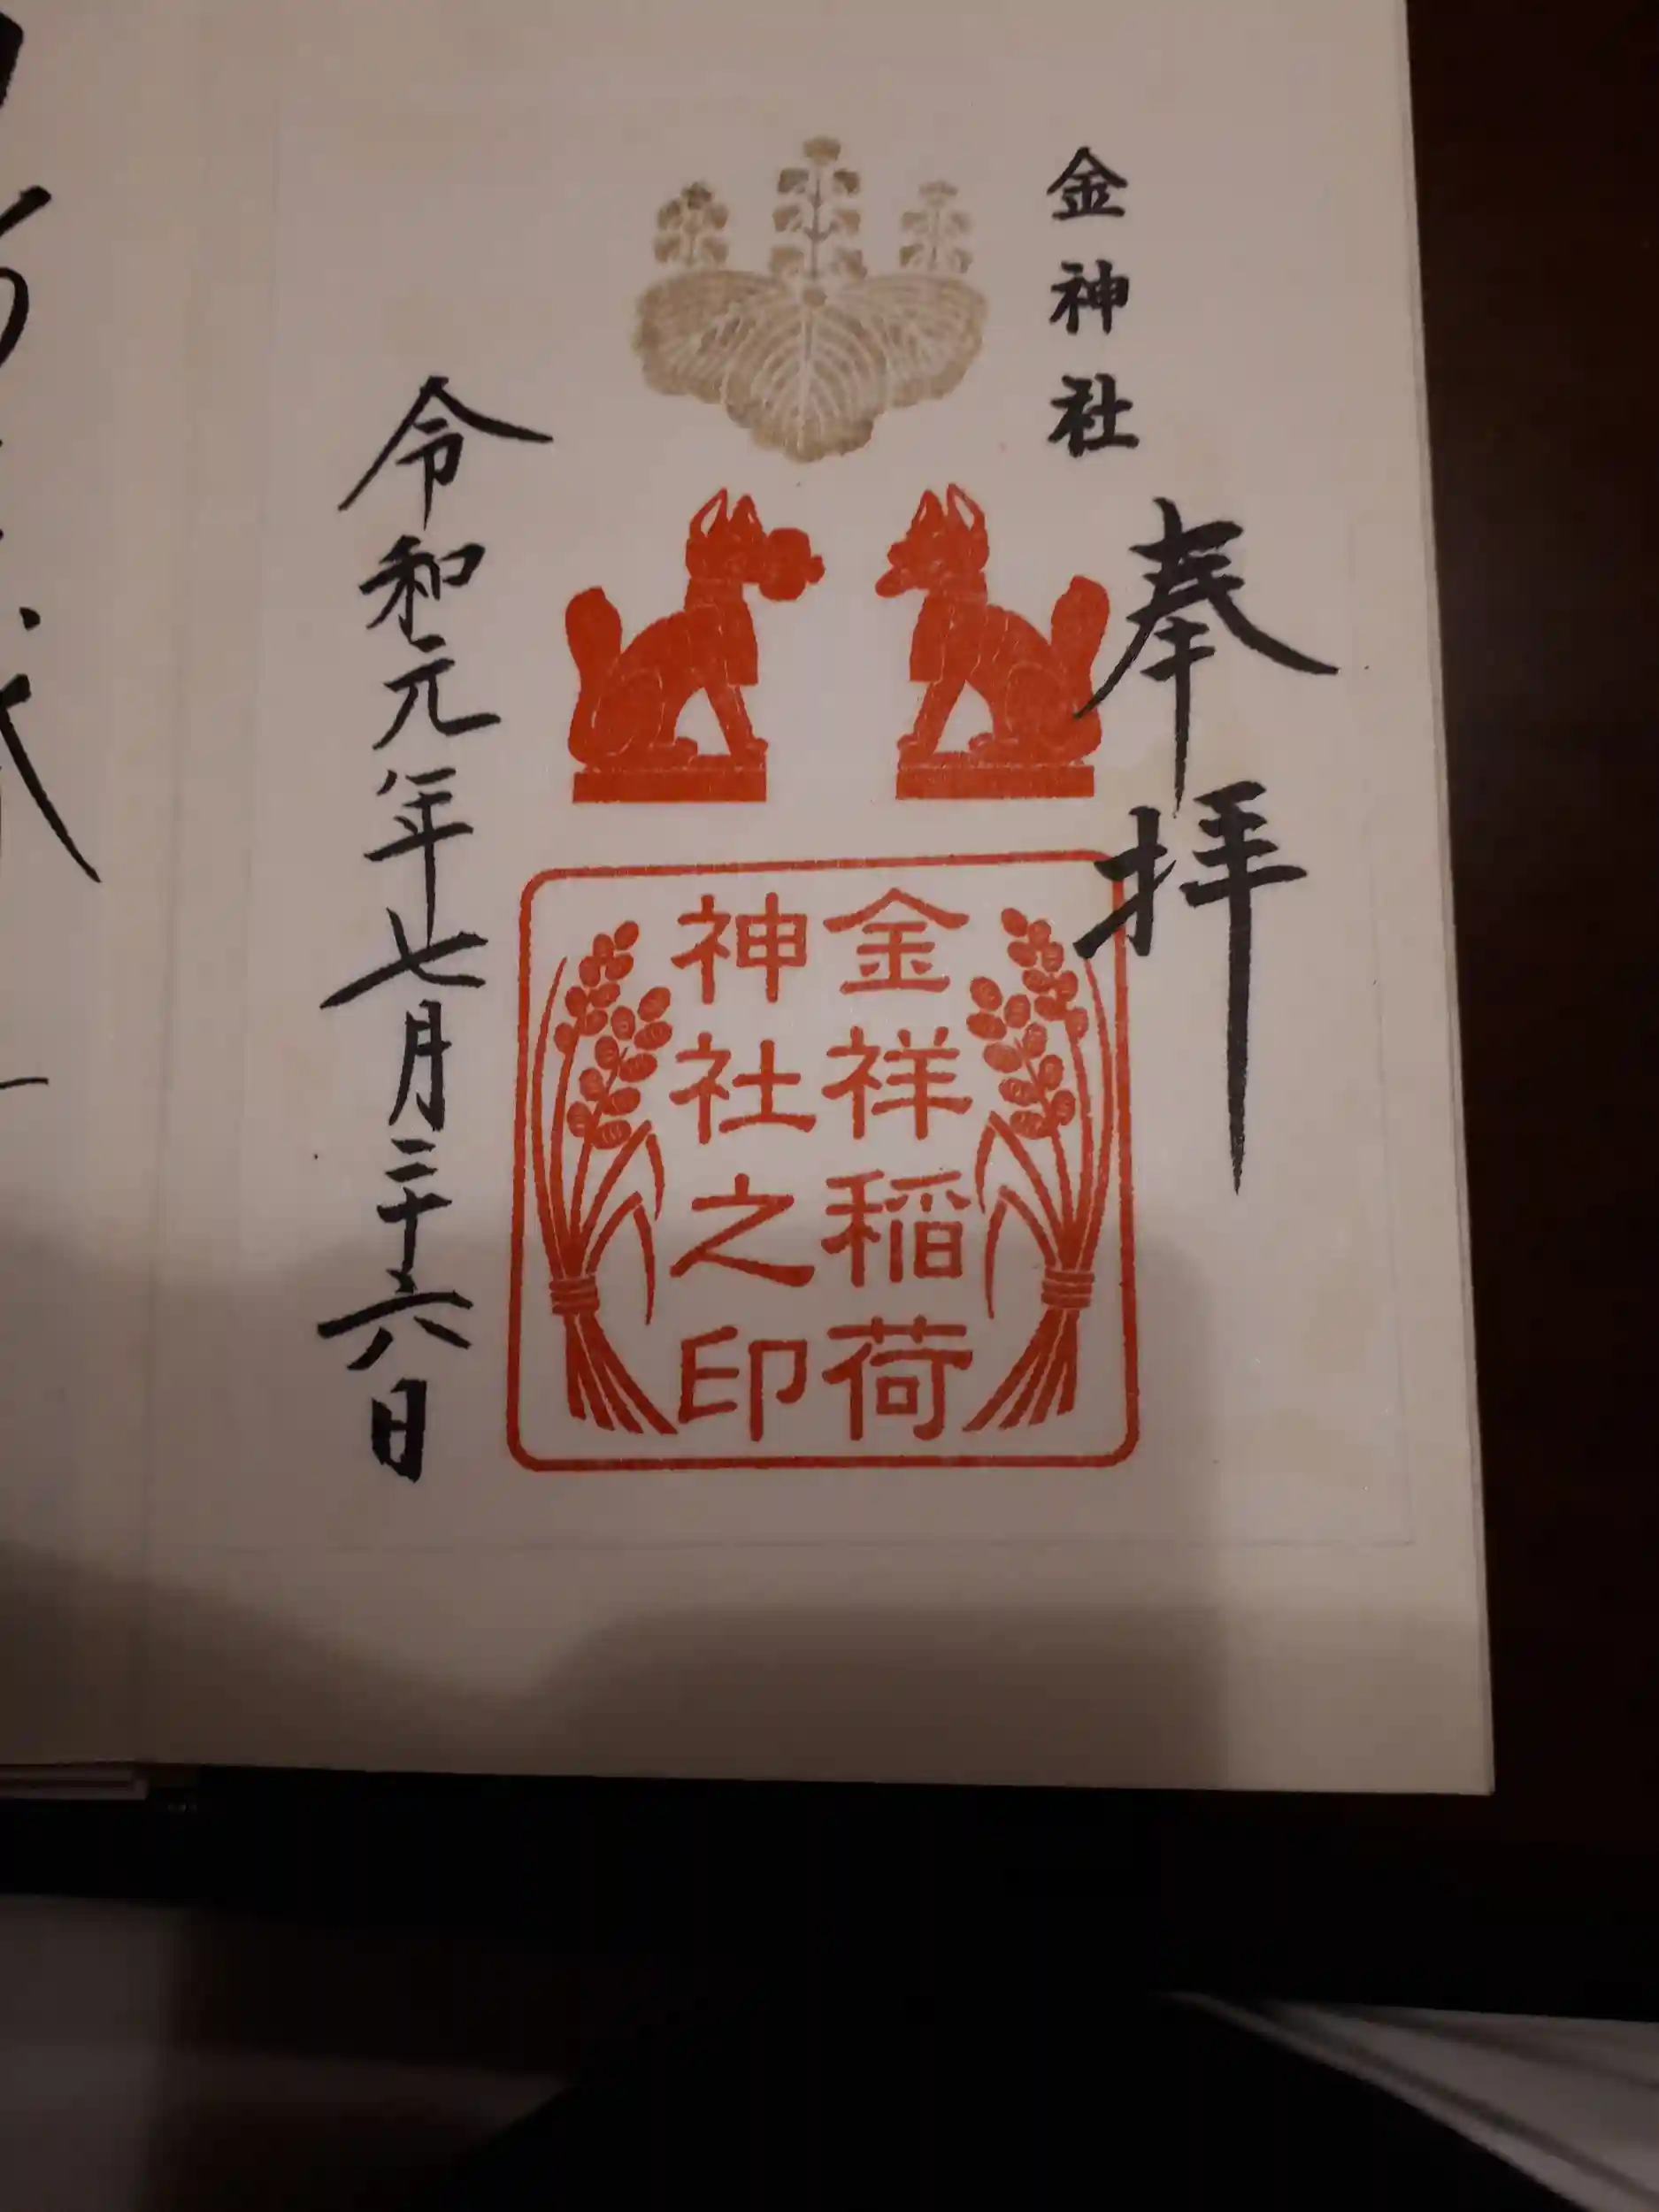 金神社
奉拝
金祥稲荷
神社之印
令和元年七月二十六日